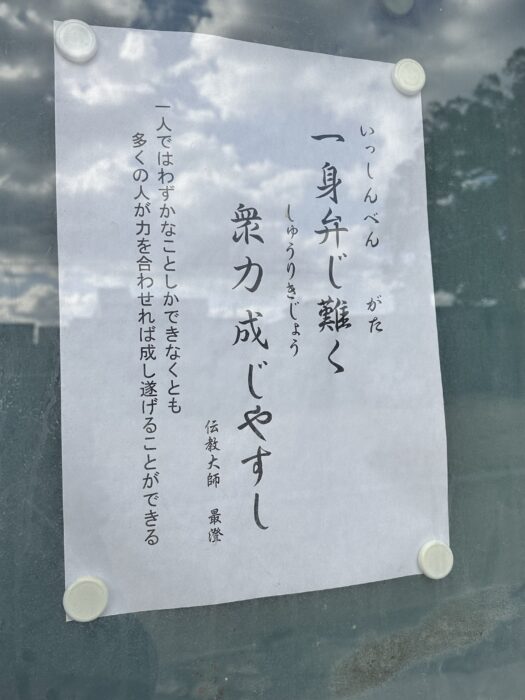 いっしんべん がた
一身弁じ難く
しゅうりきじょう
衆力成じやすし
伝教大師 最澄
一人ではわずかなことしかできなくとも
多くの人が力を合わせれば成し遂げることができる